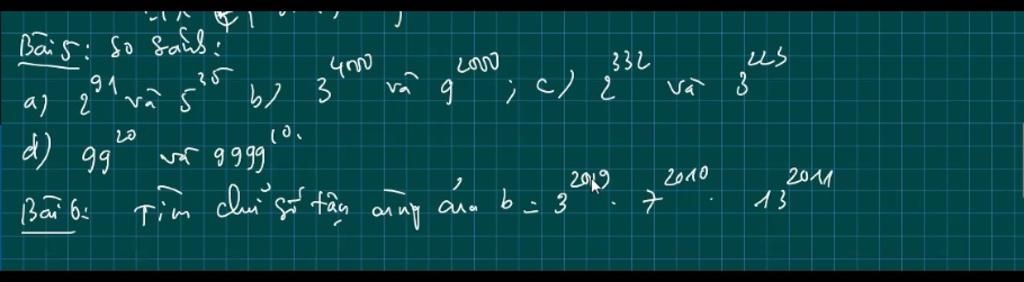 Bài 5: So sánh:
a) 2^91 và 5^35 b) 3^4000 và 9^2000 ; c) 2^332 và 3^223
d) 99^20 và 9999^10.
Bài 6: Tìm chữ số tận cùng của b = 3^2009 . 7^2010 . 13^2011